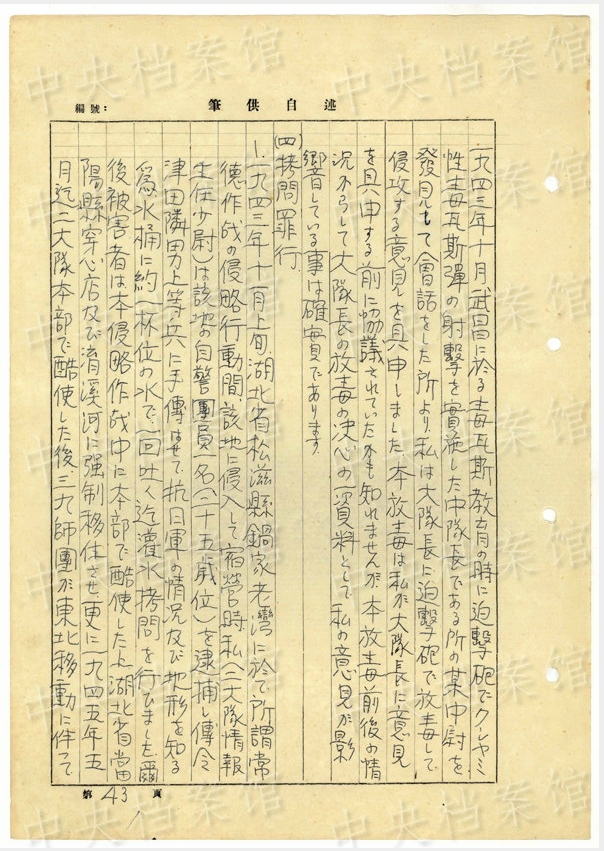 編號：
筆供自述
一九四三年十月、武昌に於る毒瓦斯教育の時に迫撃砲でクシャミ
性毒瓦斯彈の射撃を實施した中隊長である所の某中尉を
發見して會話をした所より、私は大隊長に迫撃砲で放毒して
侵攻する意見を具申しました。本放毒は私が大隊長に意見
を具申する前に協議されていたかも知れませんが本放毒前後の情
況からして大隊長の放毒の决心の一資料として私の意見が影
響している事は確實であります。
(四)拷問罪行.
1.一九四三年十一月上旬、湖北省松滋縣鍋家老灣に於て所謂常
德作战の侵略行動間、該地に侵入して宿營時、私(二大隊情報
主任少尉)は該地の自警團員一名(二十五歳位)を逮捕し傳令
津田隣男上等兵に手傳はせて、抗日軍の情况及び地形を知る
爲水桶に約一杯位の水で、一回吐く迄灌水拷問を行ひました。爾
後被害者は本侵略作战中に本部で酷使した上湖北省當
陽縣穿心店及び淯溪河に强制移住させ、更に一九四五年五
月迄二大隊本部で酷使した後、三九師團が東北移動に伴って
第43頁
中央档案馆